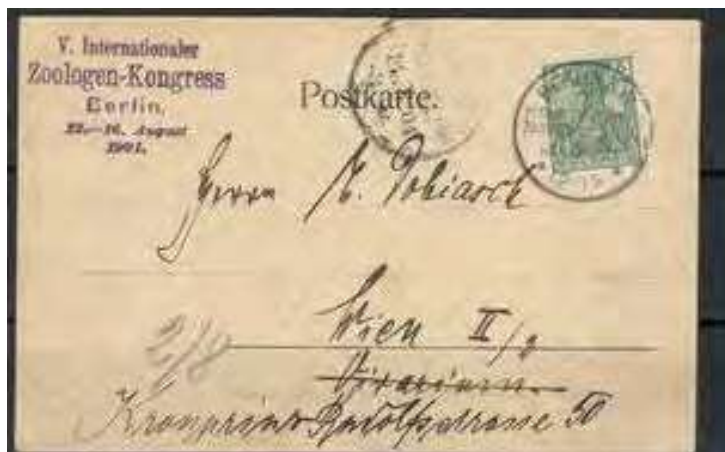 V. Internationaler
Zoologen-Kongress
Berlin,
12.–16. August
1901.
Postkarte.
Herrn E. Tobiasch
Wien II/2
Vivarium
Kronprinz Rudolfstrasse 50
2/8